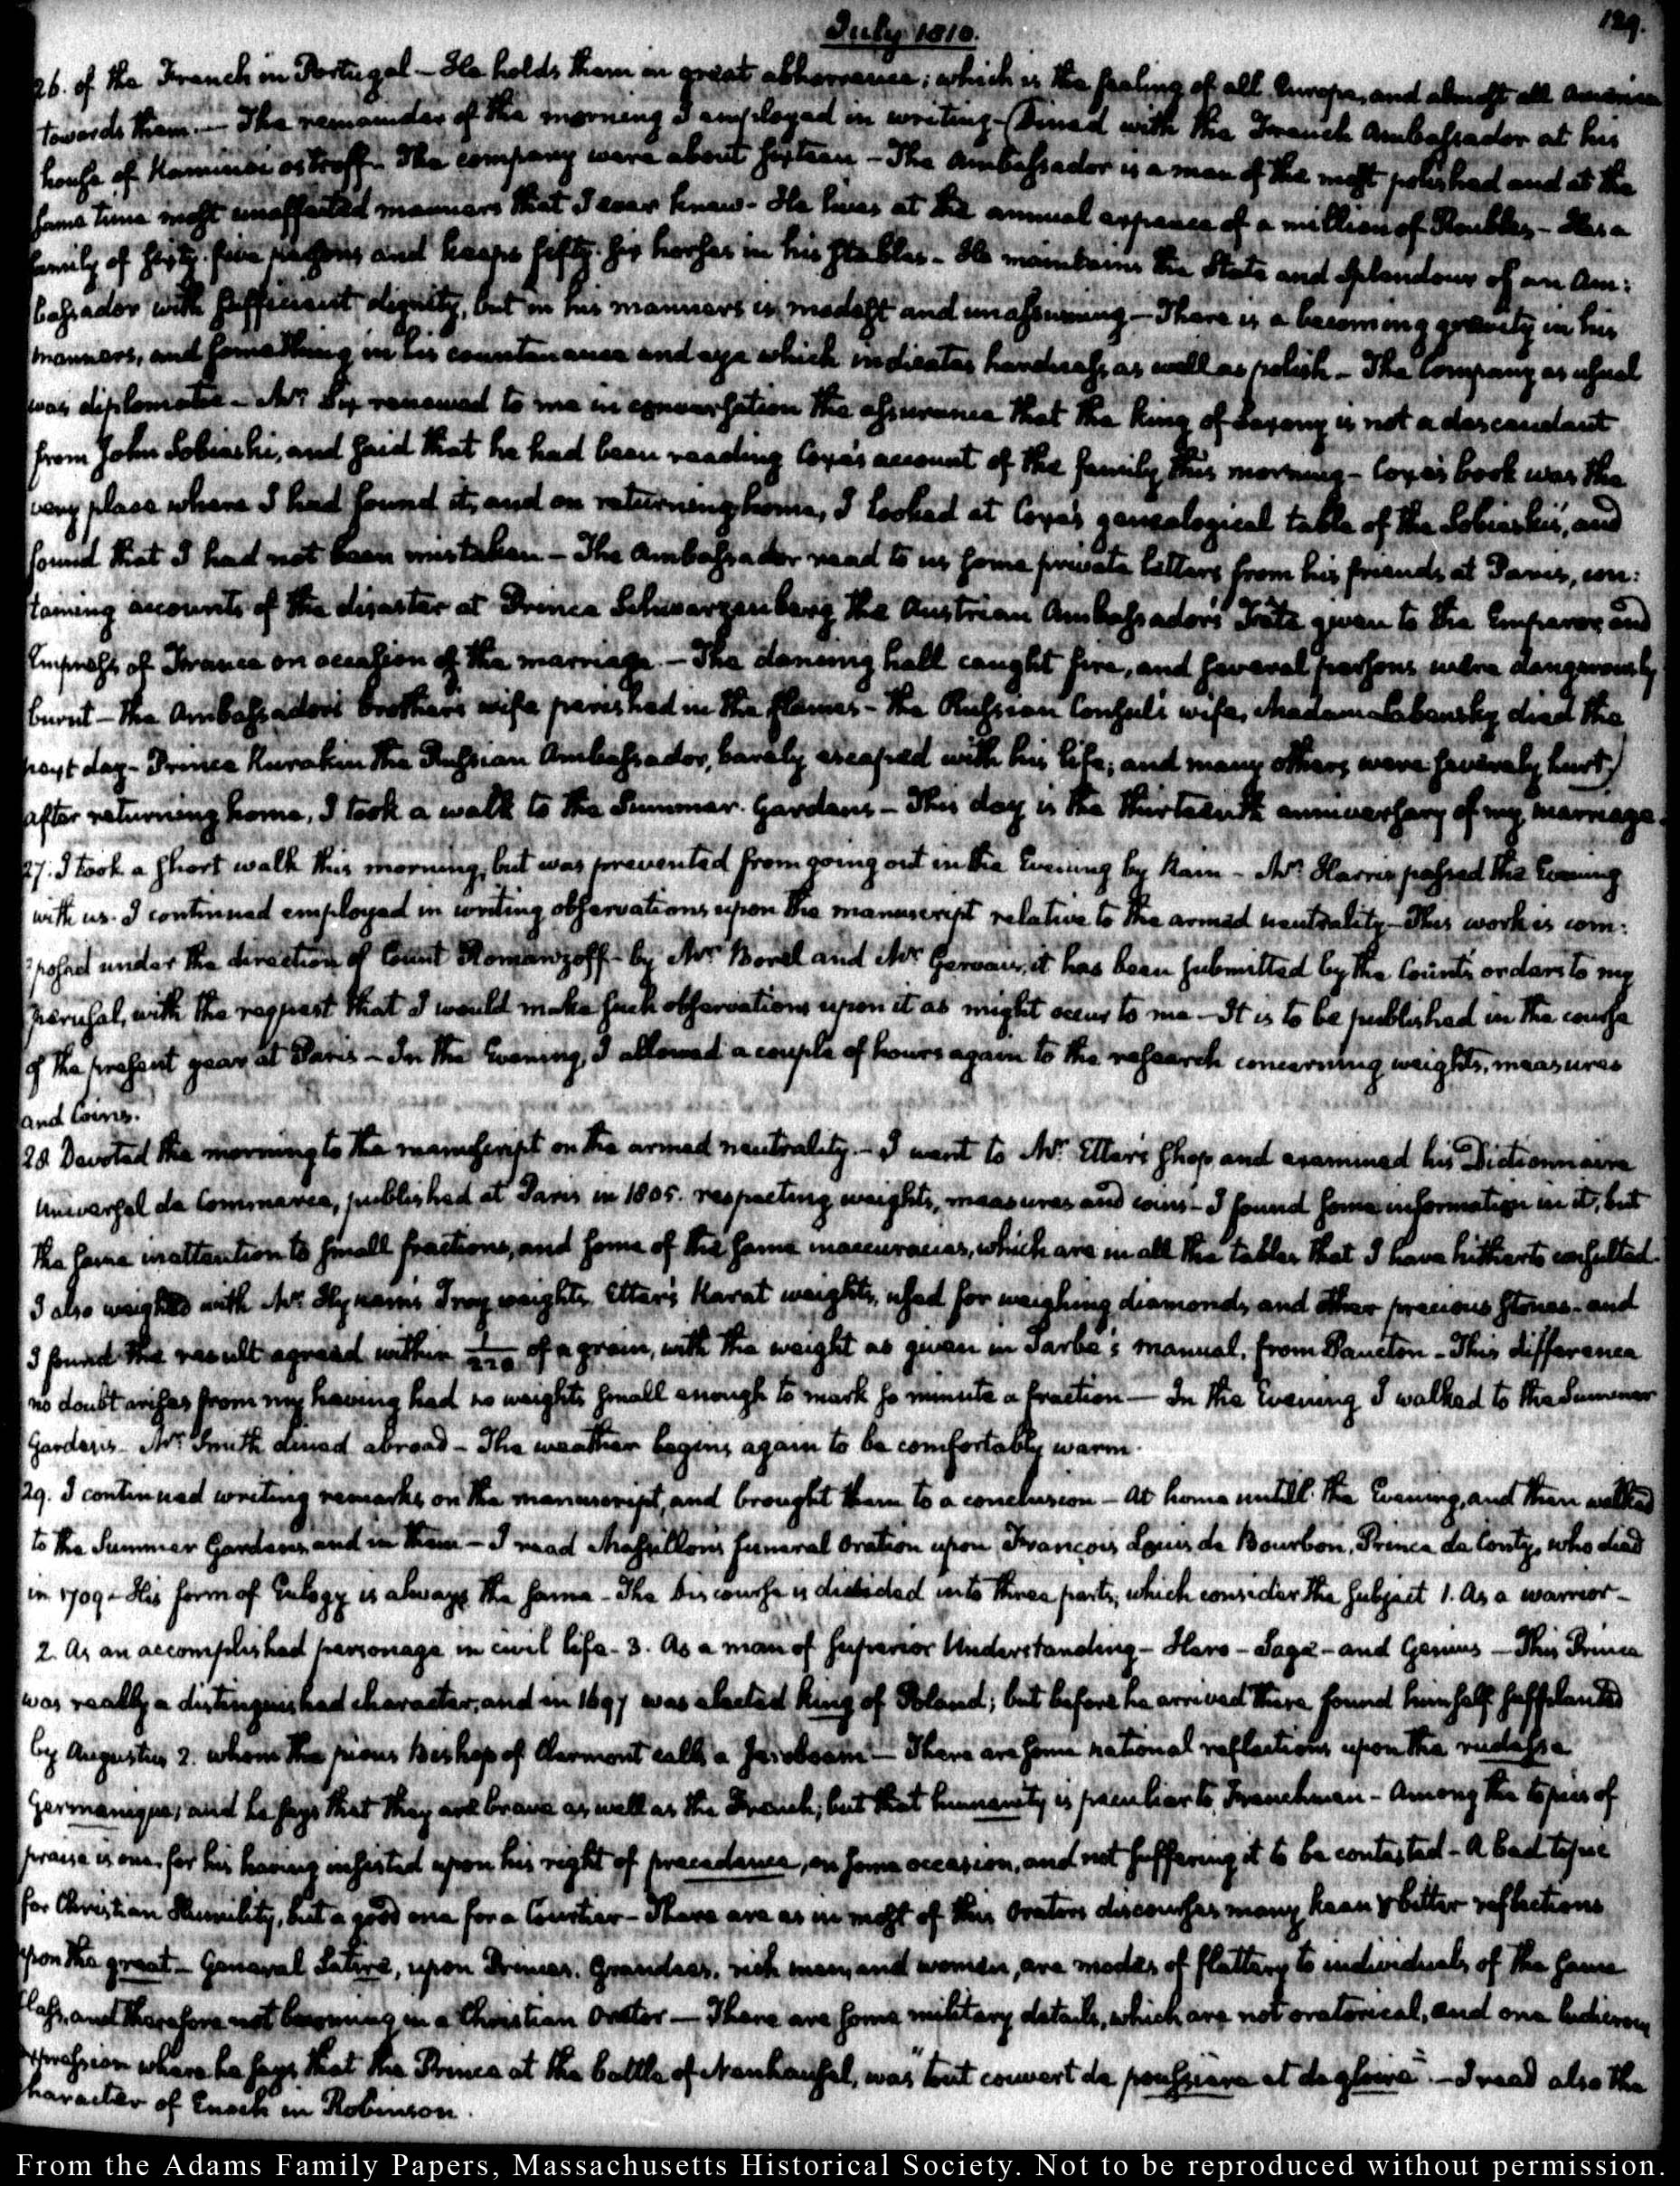 July 1810.
129.
26. of the French in Portugal – He holds them in great abhorrence; which is the feeling of all Europe, and almost all America
towards them. – The remainder of the morning I employed in writing – (Dined with the French Ambassador at his
house of Kaminoi ostroff – The company were about sixteen – The Ambassador is a man of the most polished and at the
same time most unaffected manners that I ever knew – He lives at the annual expence of a million of Roubles – Has a
family of sixty-five persons and keeps fifty-six horses in his stables – He maintains the State and Splendour of an Am:
bassador with sufficient dignity, but in his manners is modest and unassuming – There is a becoming gravity in his
manners, and something in his countenance and eye which indicates hardness, as well as polish – The Company as usual
was diplomatic – Mr. Six renewed to me in conversation the assurance that the king of Saxony is not a descendant
from John Sobieski, and said that he had been reading Coxe's account of the family this morning – Coxe's book was the
very place where I had found it, and on returning home, I looked at Coxe's genealogical table of the Sobieskis, and
found that I had not been mistaken – The Ambassador read to us some private letters from his friends at Paris, con:
taining accounts of the disaster at Prince Schwarzenberg the Austrian Ambassador's Fête given to the Emperor and
Empress of France on occasion of the marriage. – The dancing hall caught fire, and several persons were dangerously
burnt – The Ambassador's brother's wife perished in the flames – The Russian Consul's wife, Madam Labensky died the
next day – Prince Kurakin the Russian Ambassador, barely escaped with his life; and many others were severely hurt)
after returning home, I took a walk to the Summer Gardens – This day is the thirteenth anniversary of my marriage.
27. I took a short walk this morning, but was prevented from going out in the Evening by Rain – Mr. Harris passed the Evening
with us. I continued employed in writing observations upon the manuscript relative to the armed neutrality – This work is com:
:posed under the direction of Count Romanzoff – by Mr. Borel and Mr. Gervais, it has been submitted by the Count's orders to my
perusal, with the request that I would make such observations upon it as might occur to me – It is to be published in the course
of the present year at Paris – In the Evening, I allowed a couple of hours again to the research concerning weights, measures
and Coins.
28. Devoted the morning to the manuscript on the armed neutrality. – I went to Mr. Etter's shop and examined his Dictionnaire
Universel de Commerce, published at Paris in 1805. respecting weights, measures and coins – I found some information in it, but
the same inattention to small fractions, and some of the same inaccuracies, which are in all the tables that I have hitherto consulted.
I also weighed with Mr. Hynam's Troy weights Etter's Karat weights, used for weighing diamonds and other precious stones – and
I found the result agreed within 1/220 of a grain, with the weight as given in Garbe's manual, from Paucton – This difference
no doubt arises from my having had no weights small enough to mark so minute a fraction — In the Evening I walked to the Summer
Gardens – Mr. Smith dined abroad – The weather begins again to be comfortably warm.
29. I continued writing remarks on the manuscript, and brought them to a conclusion – At home untill the Evening, and then walked
to the Summer Gardens and in them – I read Massillon's funeral Oration upon François Louis de Bourbon, Prince de Conty, who died
in 1709 – His form of Eulogy is always the same – The Discourse is divided into three parts, which consider the subject 1. As a warrior –
2. As an accomplished personage in civil life. 3. As a man of superior Understanding – Hero – Sage – and Genius – This Prince
was really a distinguished character, and in 1697 was elected king of Poland; but before he arrived there found himself supplanted
by Augustus 2. whom the pious Bishop of Clermont calls a Jeroboam – There are some national reflections upon the rudesse
Germanique; and he says that they are brave as well as the French, but that humanity is peculiar to Frenchmen – Among the topics of
praise is one, for his having insisted upon his right of precedence, on some occasion, and not suffering it to be contested – A bad topic
for Christian Humility, but a good one for a Courtier – There are as in most of this Orators discourses many keen & bitter reflections
upon the great – General Satire, upon Princes, Grandees, rich men, and women, are modes of flattery to individuals of the same
Class, and therefore not becoming in a Christian Orator — There are some military details, which are not oratorical, and one ludicrous
expression where he says that the Prince at the battle of Neuhausel, was "tout couvert de poussiere et de gloire". – I read also the
character of Enoch in Robinson.
From the Adams Family Papers, Massachusetts Historical Society. Not to be reproduced without permission.